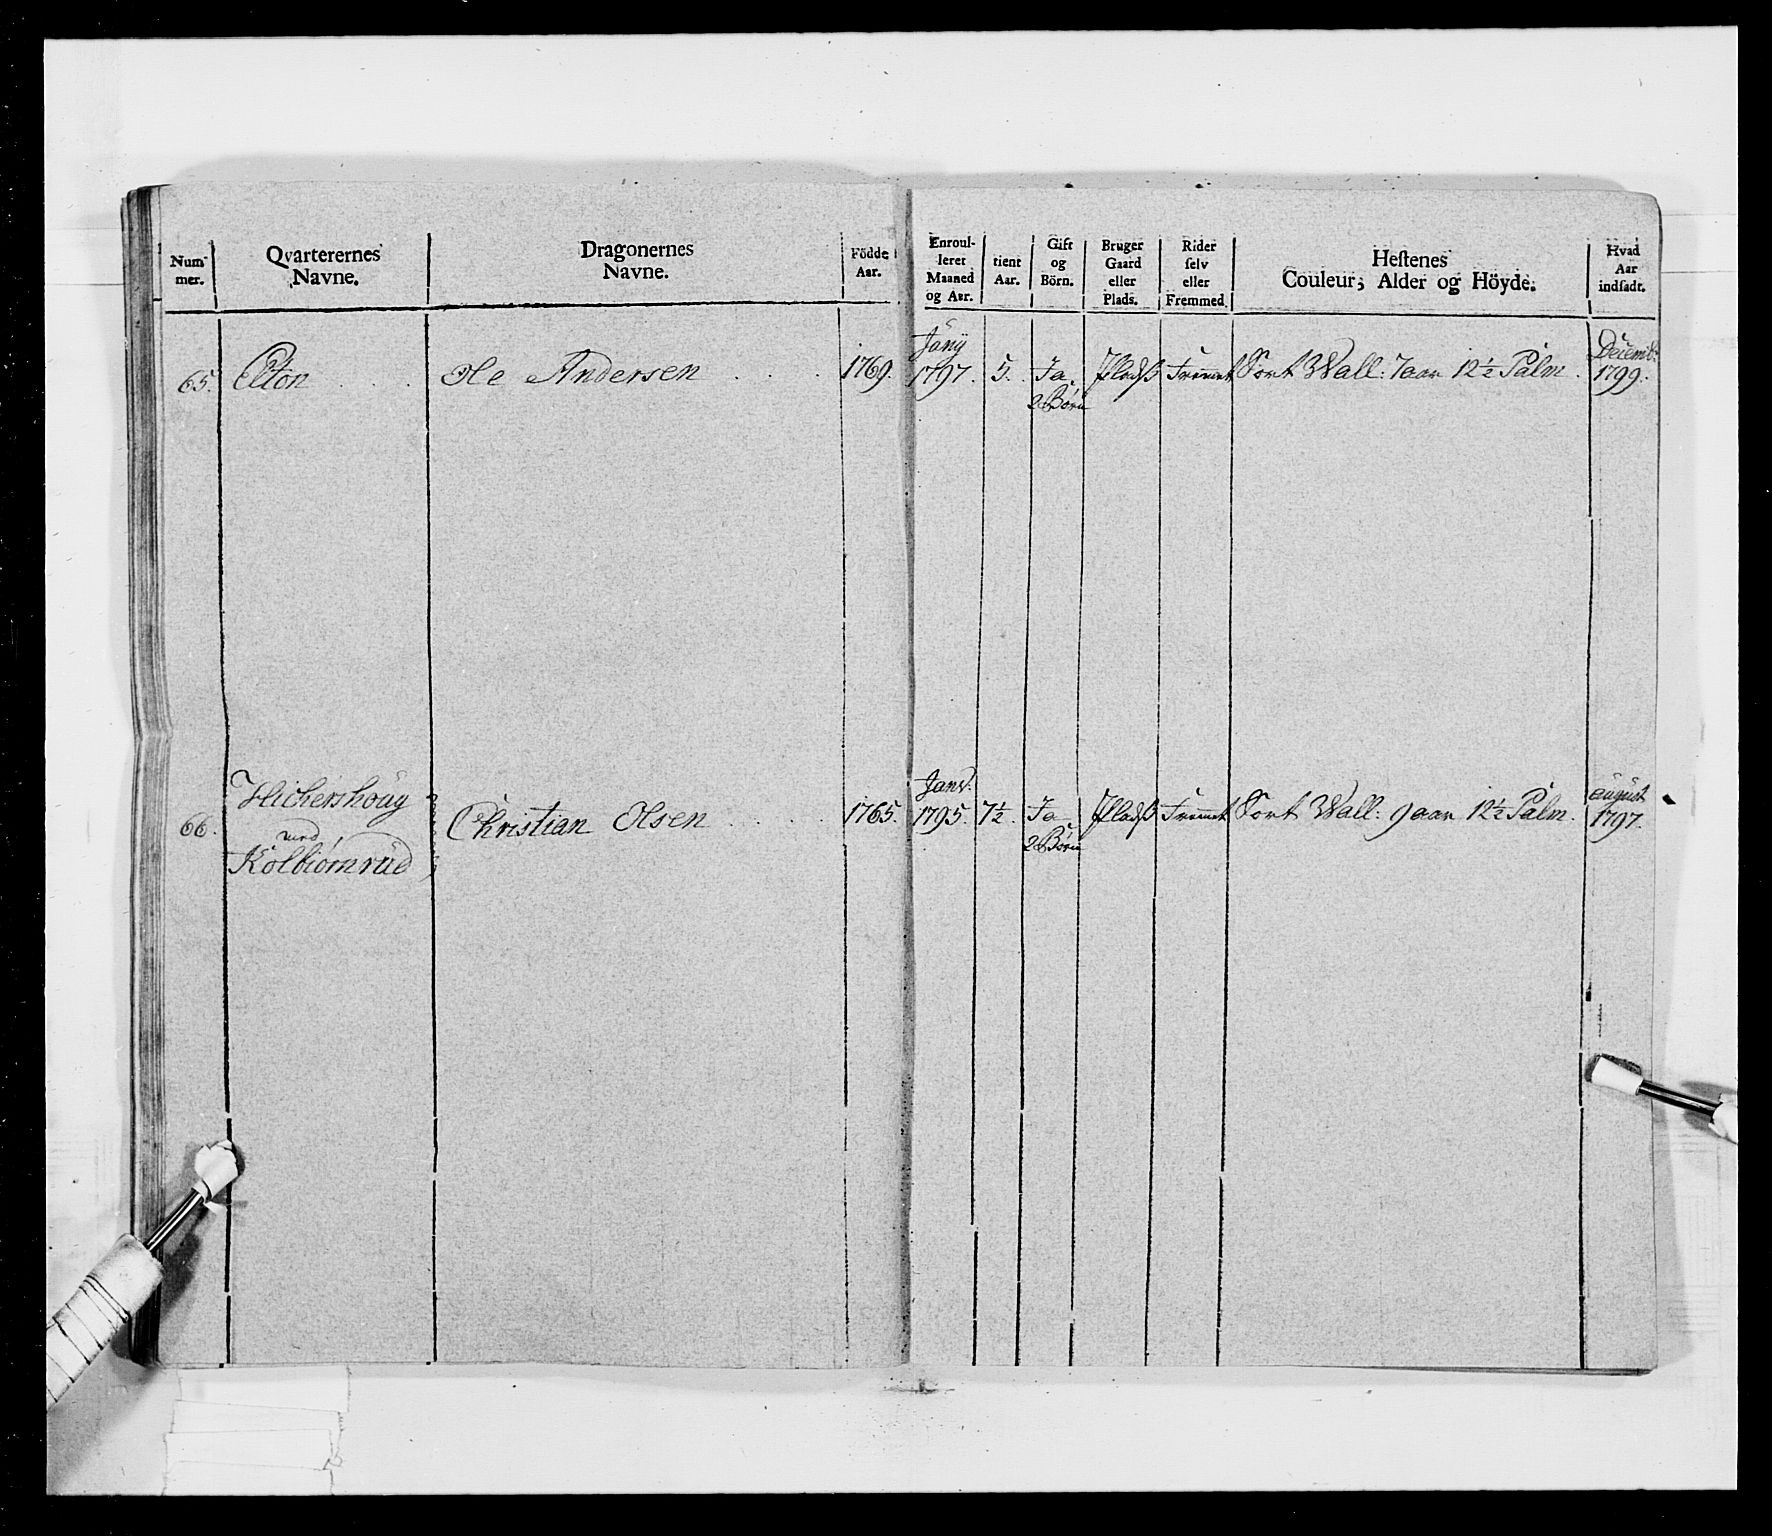 Num-
mer.
Qvarterernes
Navne.
Dragonernes
Navne.
Födde
Aar.
Enroul-
leret
Maaned
og Aar.
tient
Aar.
Gift
og
Börn.
Bruger
Gaard
eller
Plads.
Rider
ſelv
eller
Fremmed.
Heſtenes
Couleur, Alder og Höyde.
Hvad
Aar
indſadt.
65.
Ole Andersen
1769.
1797.
5.
Ja
2 Børn
Pladß
Sort Wall: 7 aar 12½ Palm.
Decemb:
1799.
66.
med
Kolbiørnrud
Christian Olsen
1765.
Janv:
1795.
7½.
Ja
2 Børn
Pladß
Sort Wall: 9 aar 12½ Palm.
august
1797.